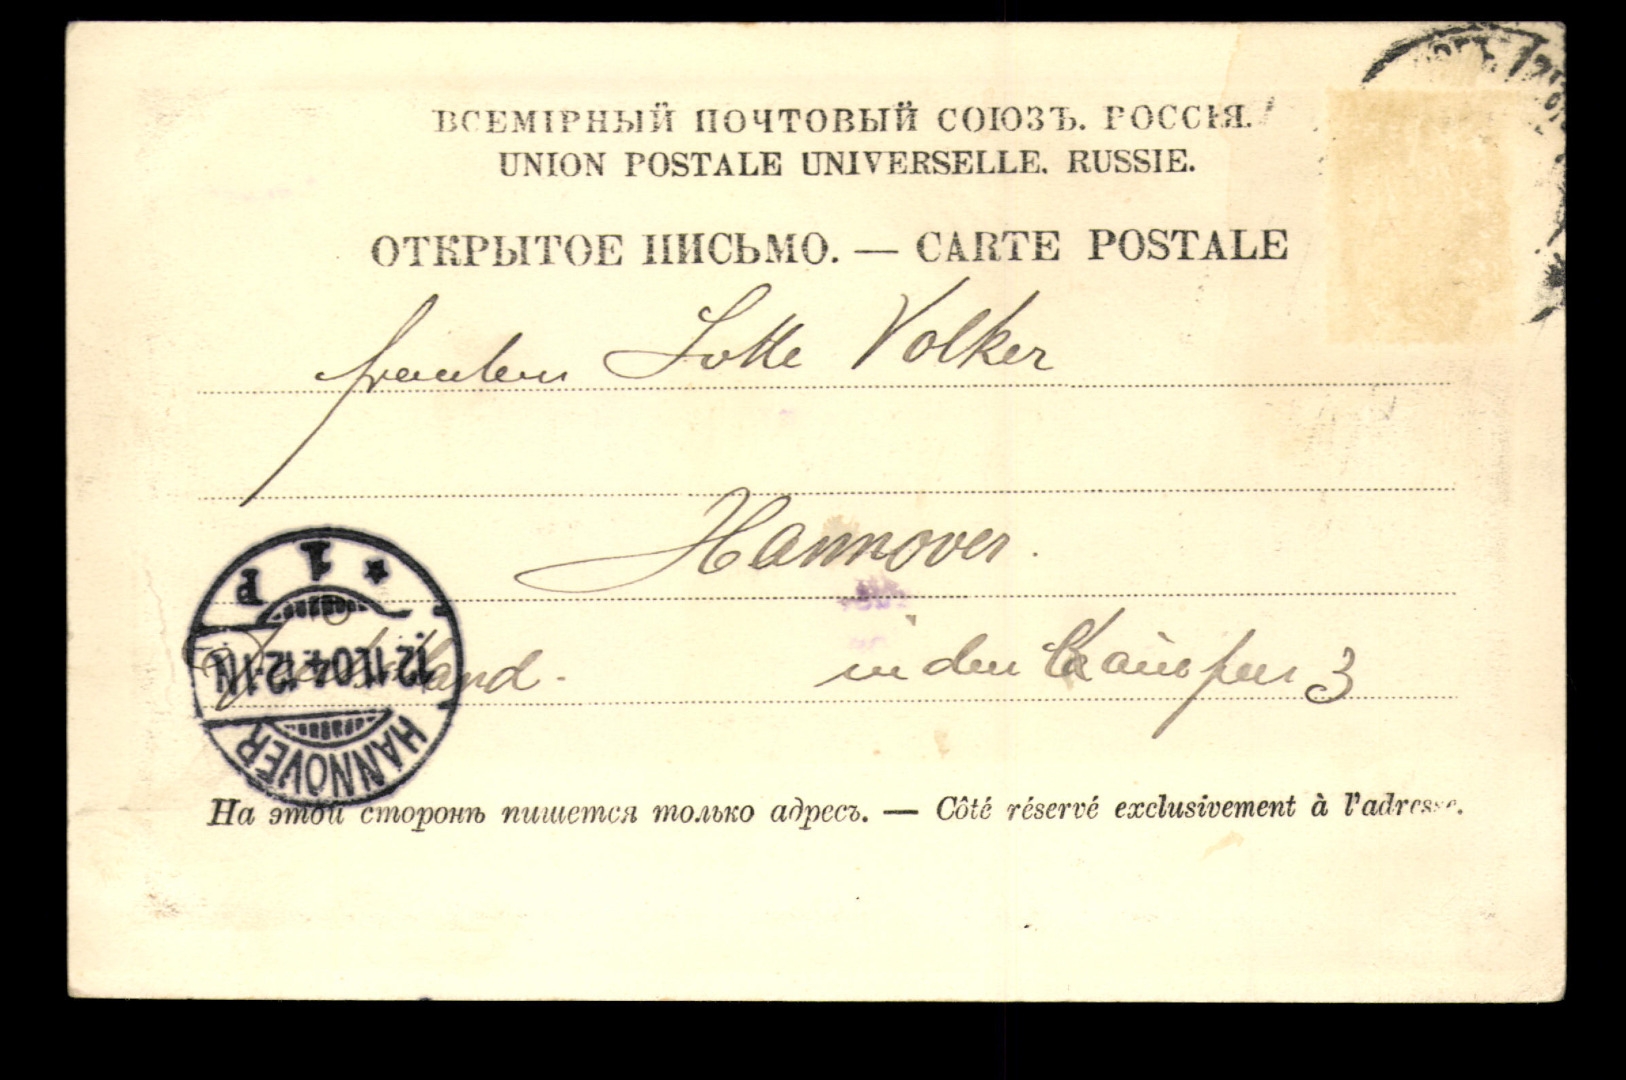 ВСЕМІРНЫЙ ПОЧТОВЫЙ СОЮЗЪ. РОССІЯ.
UNION POSTALE UNIVERSELLE. RUSSIE.
ОТКРЫТОЕ ПИСЬМО. — CARTE POSTALE
Fräulein Lotte Volker
Hannover.
in den 3
HANNOVER
12.11.04.12-1N
* 1 P
На этой сторонѣ пишется только адресъ. — Côté réservé exclusivement à l'adresse.